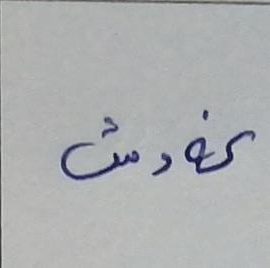 خودش